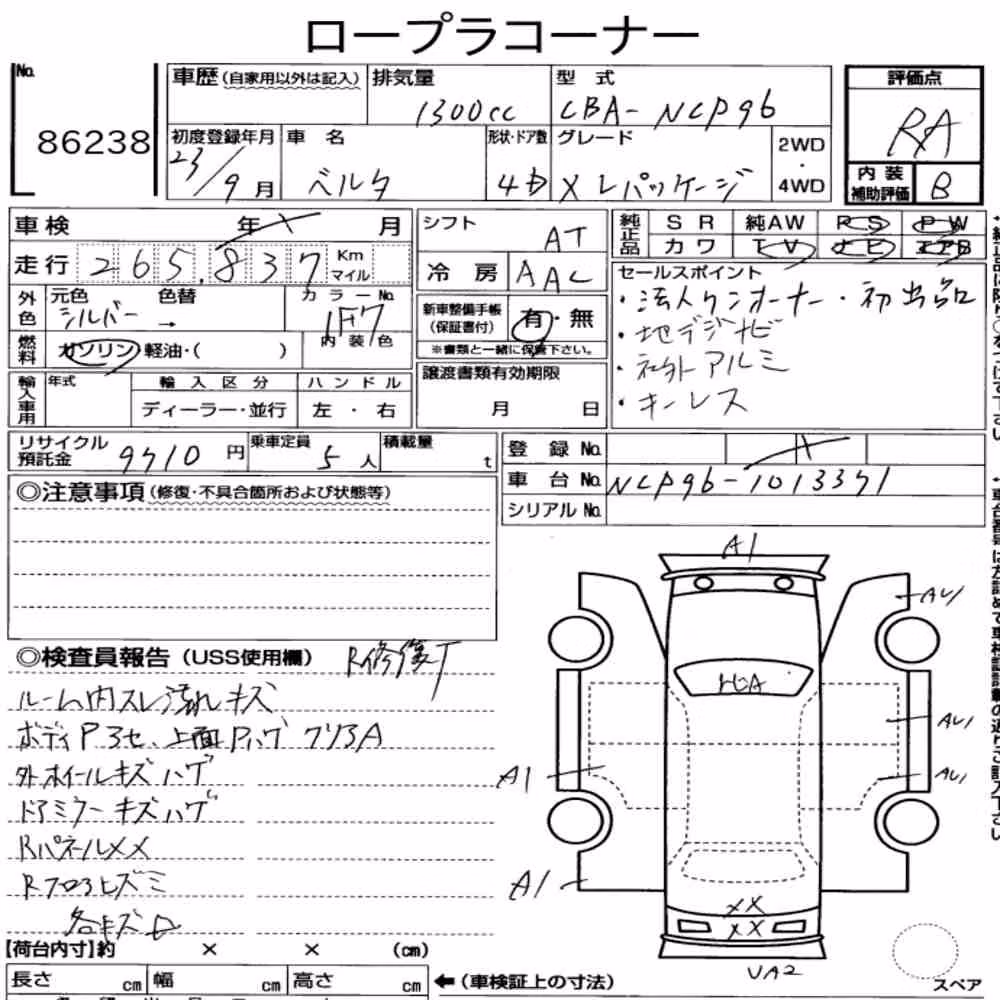 ロープラコーナー
No. 86238
車歴 (自家用以外は記入) 排気量 1300cc 型式 CBA-NCP96
評価点 RA
初度登録年月 23/9月 車名 ベルタ 形状・ドア数 4D グレード X Lパッケージ 2WD・4WD
内装補助評価 B
車検 年 月
シフト AT
純正品 SR 純AW PS PW
カワ TV ナビ エアB
走行 265,837 Km マイル
冷房 AAC
セールスポイント
・法人ワンオーナー・初出品
・地デジナビ
・社外アルミ
・キーレス
外色 元色 シルバー → 色替 カラーNo. 1F7
内装色
新車整備手帳(保証書付) 有・無
※書類と一緒に保管下さい。
燃料 ガソリン 軽油・( )
輸入車用 年式 輸入区分 ハンドル
ディーラー・並行 左・右
譲渡書類有効期限
月 日
リサイクル預託金 9710円 乗車定員 5人 積載量 t
登録No.
車台No. NCP96-1013371
シリアルNo.
◎注意事項 (修復・不具合箇所および状態等)
◎検査員報告 (USS使用欄) R修復了
ルーム内スレ汚れキズ
ボディP3セ、上面Pハゲ
外ホイールキズハゲ
ドアミラーキズハゲ
RパネルXX
Rフロアヒズミ
各キズ凹
A1
AU1
AU1
AU1
A1
A1
XX
XX
UA2
スペア
【荷台内寸】約 × × (cm)
長さ cm 幅 cm 高さ cm
← (車検証上の寸法)